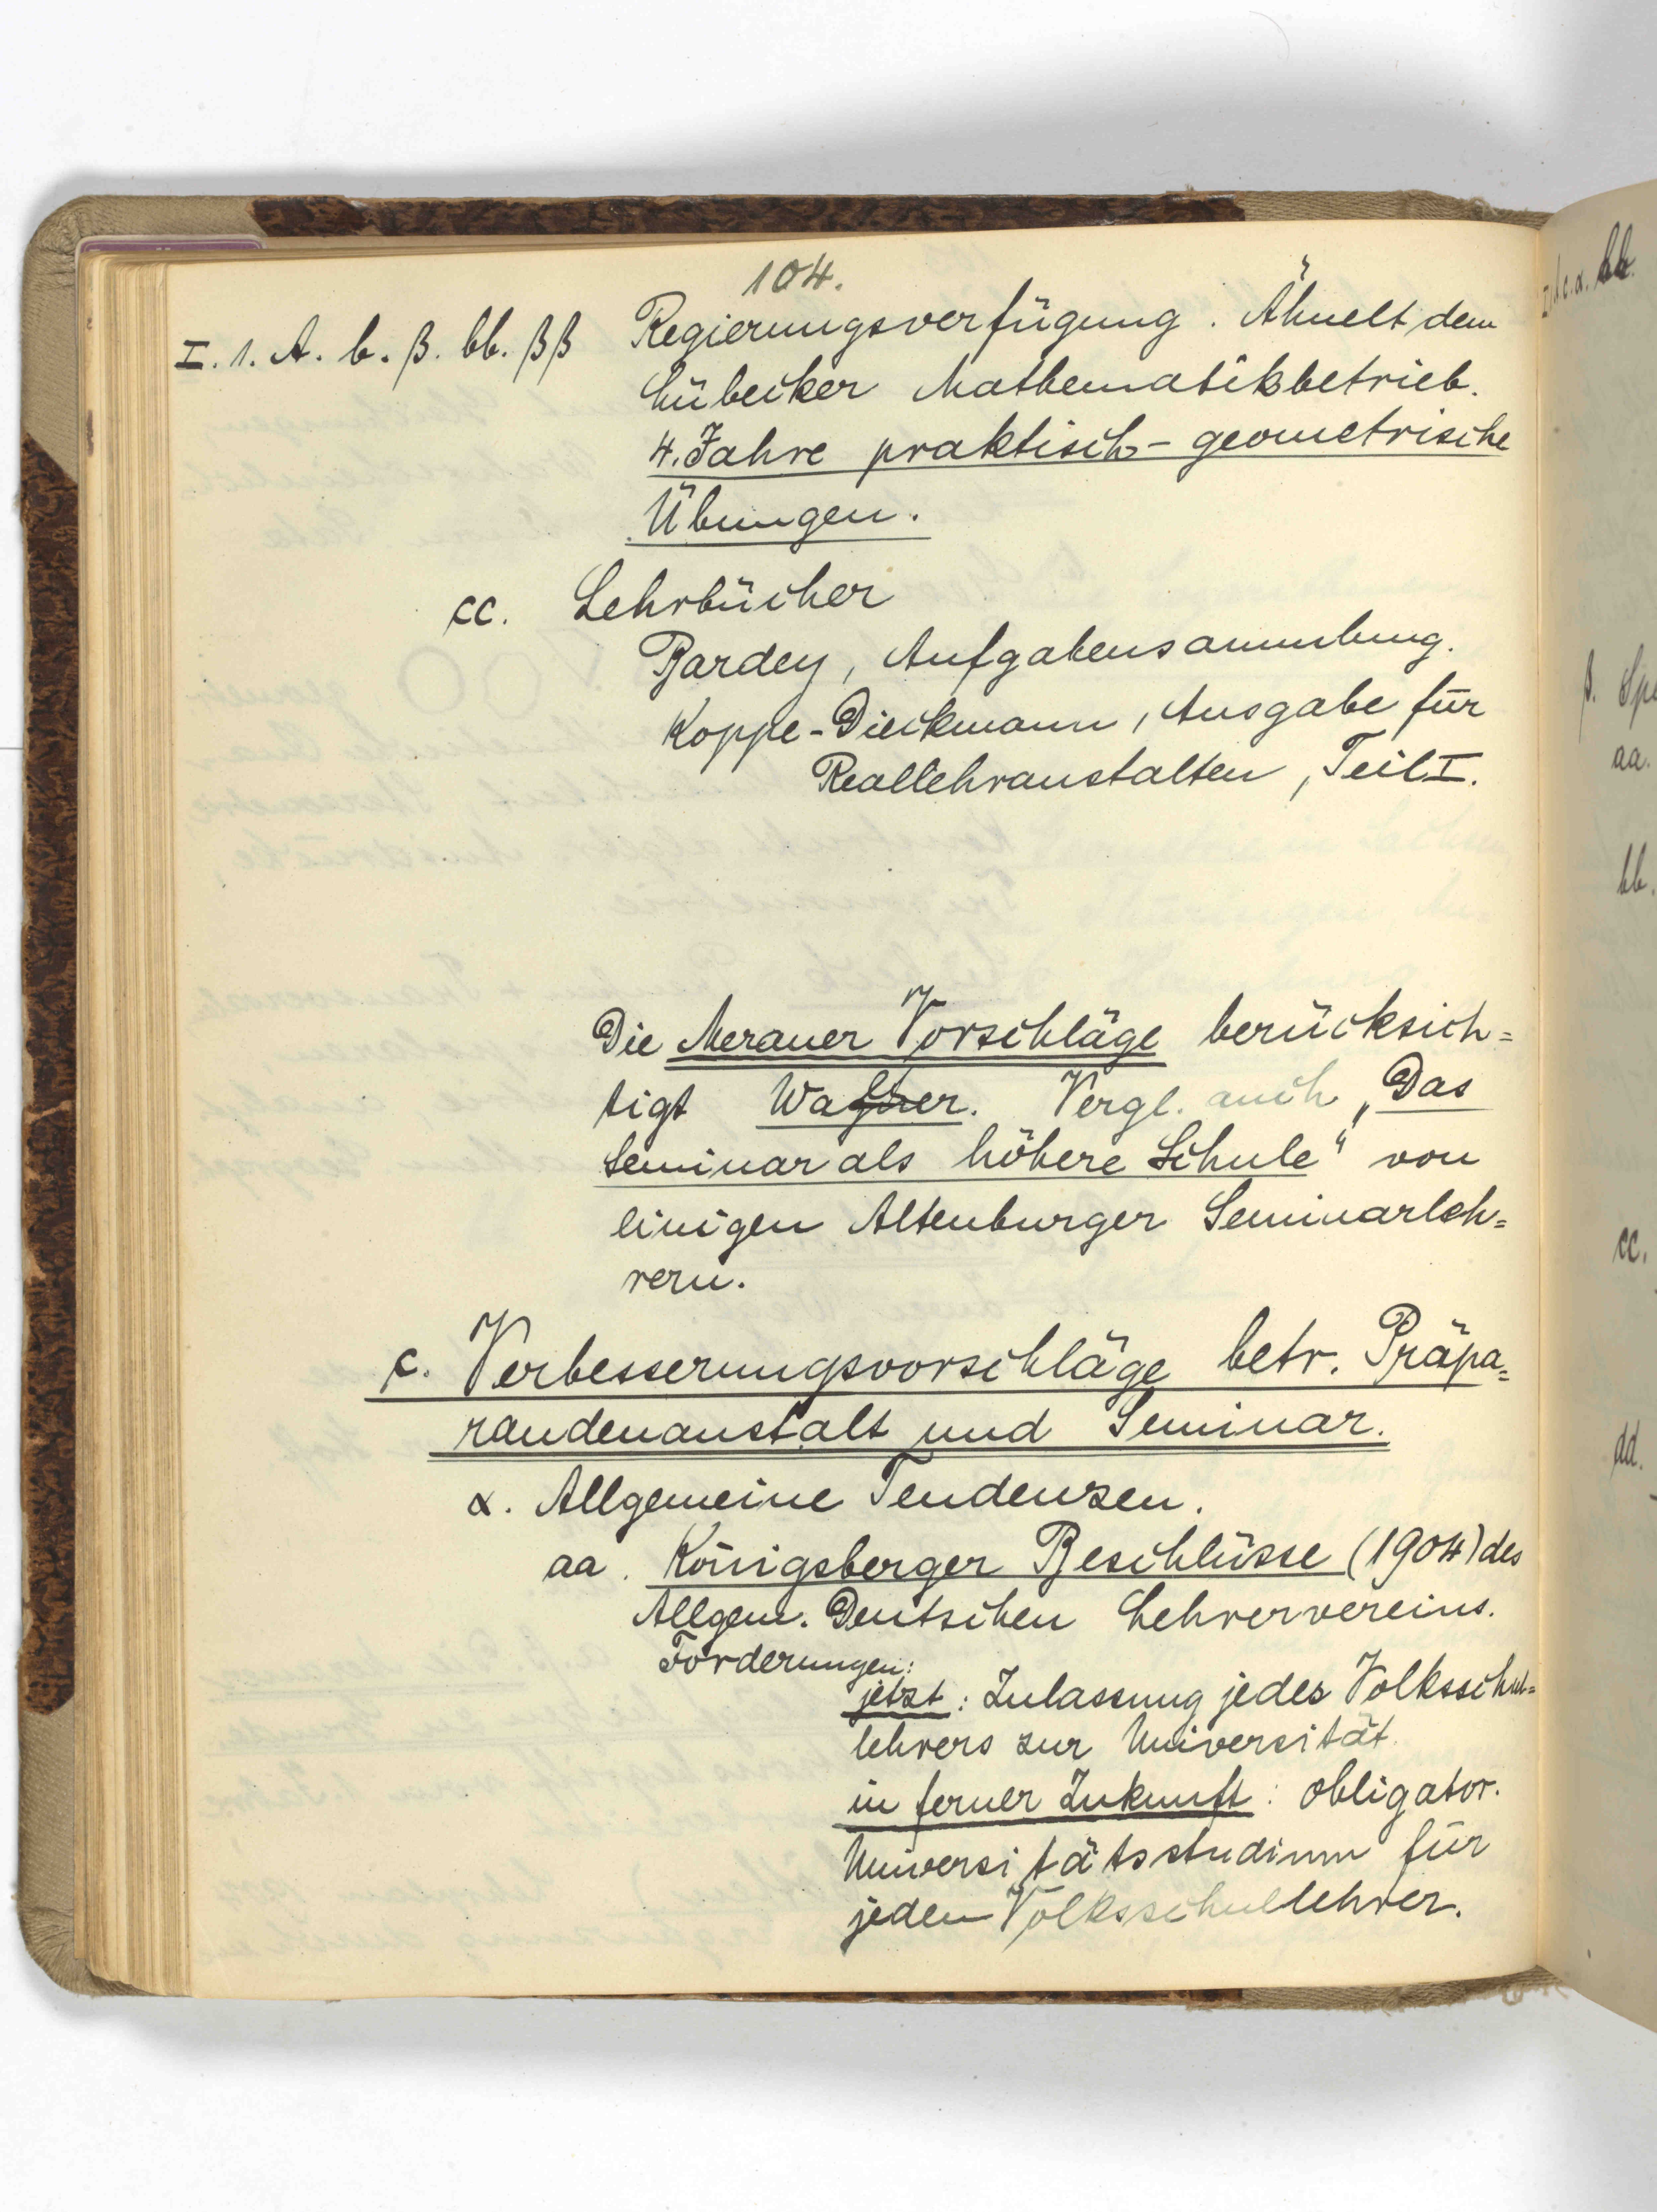 104.
I. 1. A. b. β. bb. ββ Regierungsverfügung. Ähnelt dem
Lübecker Mathematikbetrieb.
4. Jahre praktisch-geometrische
Übungen.
cc. Lehrbücher
Bardey, Aufgabensammlung.
Koppe-Dieckmann, Ausgabe für
Reallehranstalten, Teil I.
Die Meraner Vorschläge berücksich=
tigt Vergl. auch „Das
Seminar als höhere Schule“ von
einigen Altenburger Seminarleh=
rern.
c. Verbesserungsvorschläge betr. Präpa=
randenanstalt und Seminar.
α. Allgemeine Tendenzen.
aa. Königsberger Beschlüsse (1904) des
Allgem. Deutschen Lehrervereins.
Forderungen:
jetzt: Zulassung jedes Volksschul=
lehrers zur Universität.
in ferner Zukunft: obligator.
Universitätsstudium für
jeden Volksschullehrer.
bb.
β. Spe
aa.
bb.
cc.
dd.